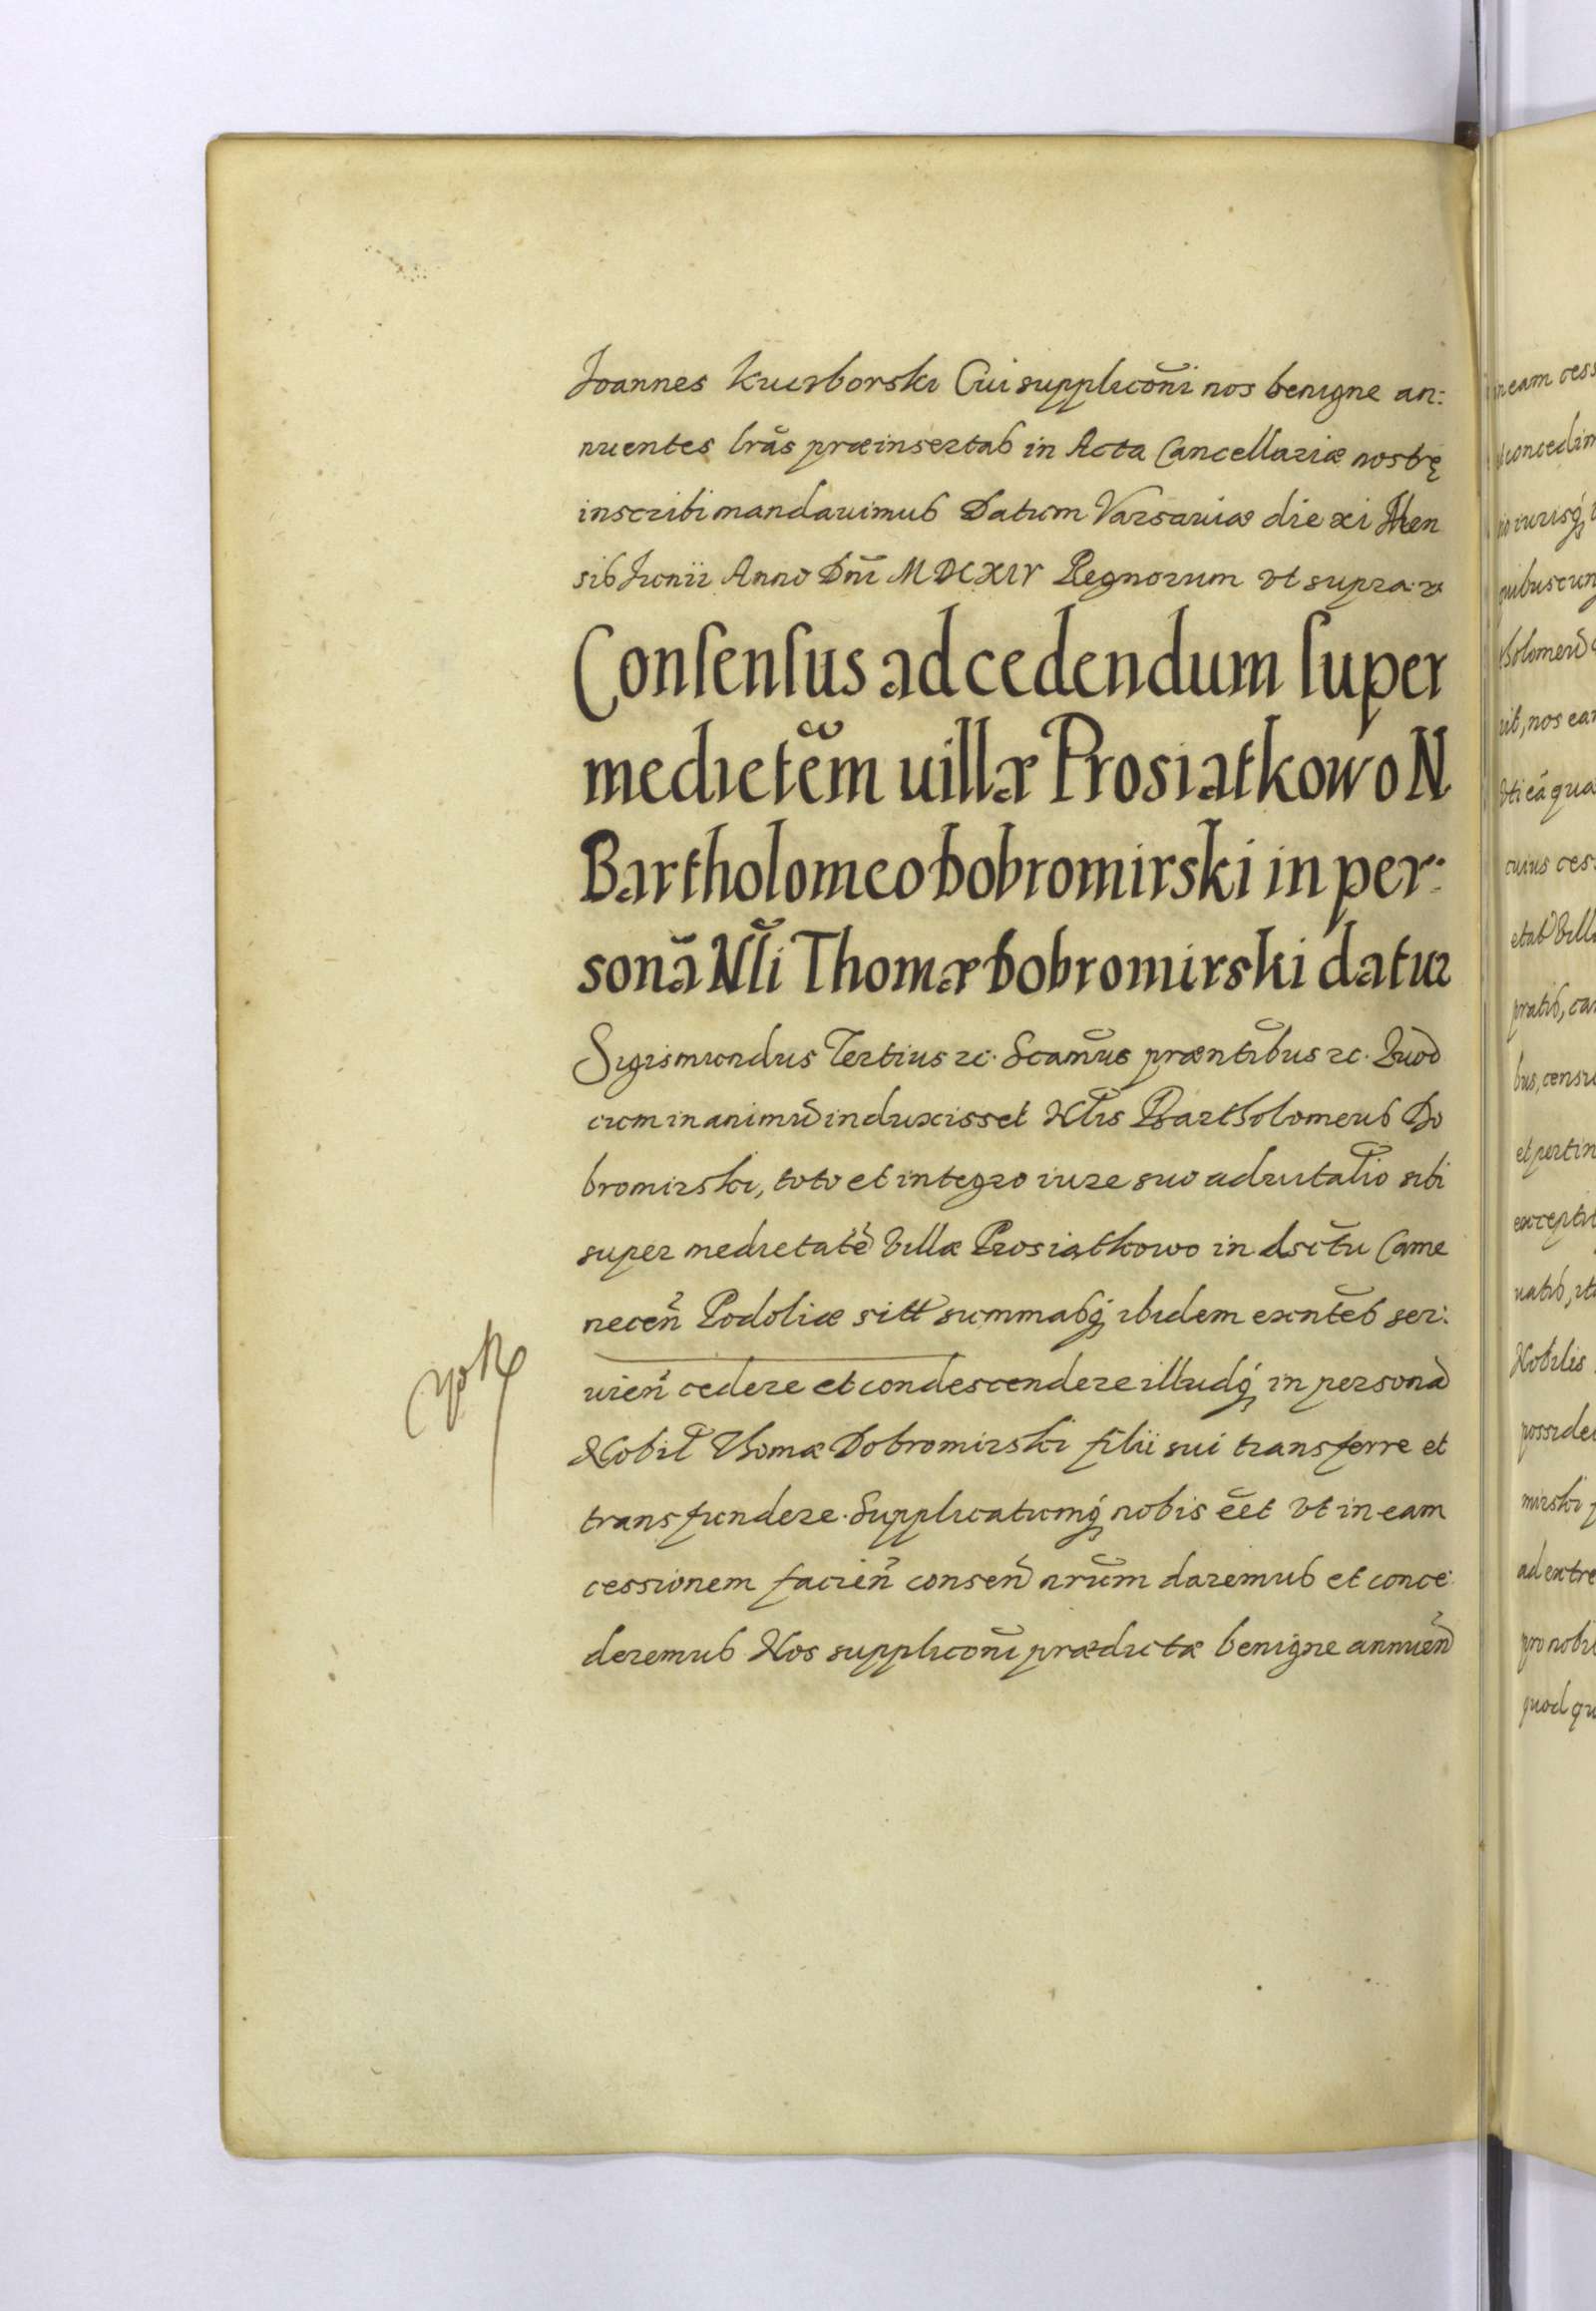 Joannes Kuczborski Cui supplicoñi nos benigne an:
nuentes lrãs præinsertas in Acta Cancellariæ nostrę
inscribi mandauimus Datum Varsauiæ die xi Men
sis Junii Anno Dñi MDCXIV Regnorum vt supra
Conſenſus ad cedendum ſuper
medietẽm uillæ Prosiatkowo N
Bartholomeo Dobromirski in per:
sonã Nl̃i Thomæ Dobromirski datur
Sigismundus Tertius ꝛc. Scam̃us præntĩbus ꝛc. Quod
cum in animũ induxisset Nl̃is Bartholomeus Do
bromirski, toto et integro iure suo aduital̃io sibi
super medietatẽ Villæ Prosiatkowo in dsctũ Came
necen̉ Podoliæ sitt summasq̨ ibidem exñtes ser:
uien̉ cedere et condescendere illudq̨ in personã
Nobil̃ Thomæ Dobromirski filii sui transferre et
transfundere. Supplicatumq̨ nobis eẽt vt in eam
cessionem facien̉ consen̉ nrũm daremus et conce:
deremus Nos supplicoñi prædictæ benigne annuen̉
in eam cess
concedim
iurisq̨
quibuscun
tholomeũ
rit, nos ean
vti eã qua
cuius cess
etatẽ Vill
pratis, ca
bus, censi
et pertin
exceptis
uatis, ita
Nobilis
posside
mirski p
ad extre
pro nobi
quod qu